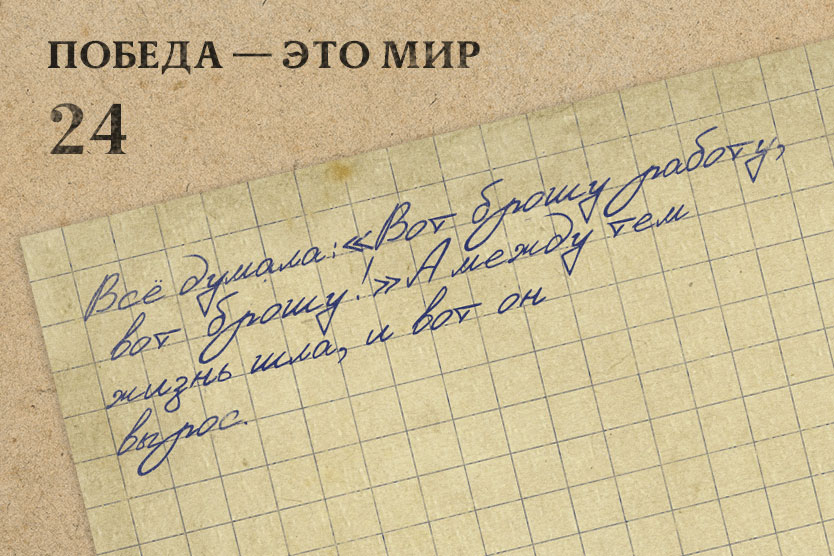 ПОБЕДА — ЭТО МИР
24
Всё думала: «Вот брошу работу,
вот брошу!» А между тем
жизнь шла, и вот он
вырос.